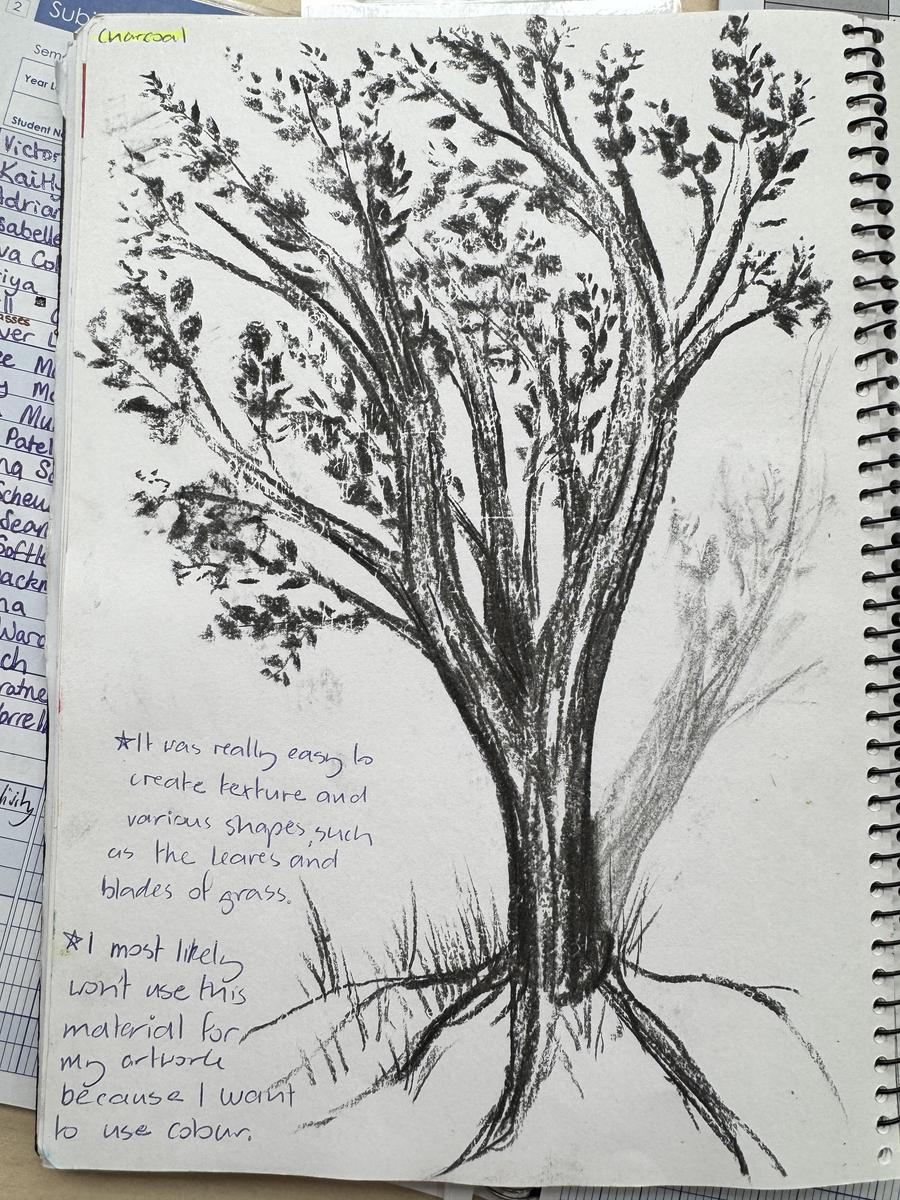 2
Sem
Year L
Student N
Victor
Adrian
sabelle
va Col
riya
asses
ver
Mu
Patel
Scheu
Sean
Softh
na
Ward
ch
ratne
orrell
tivity
charcoal
☆It was really easy to
create texture and
various shapes, such
as the leaves and
blades of grass.
☆I most likely
won't use this
material for
my artwork
because I want
to use colour.